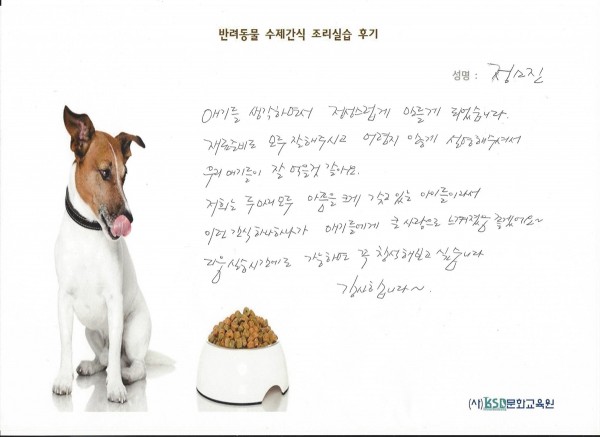 반려동물 수제간식 조리실습 후기
성명 : 정소진
애기를 생각하면서 정성스럽게 만들게 되었습니다.
재료준비도 모두 잘해주시고 어렵지 않게 설명해주셔서
우리 애기들이 잘 먹을것 같아요.
저희는 두마리 모두 아픔을 크게 갖고 있는 아이들이라서
이런 간식 하나하나가 애기들에게 큰 사랑으로 느껴졌음 좋겠어요~
다음 실습시간에도 가능하면 꼭 참석해보고 싶습니다
감사합니다~.
(사)KSD문화교육원